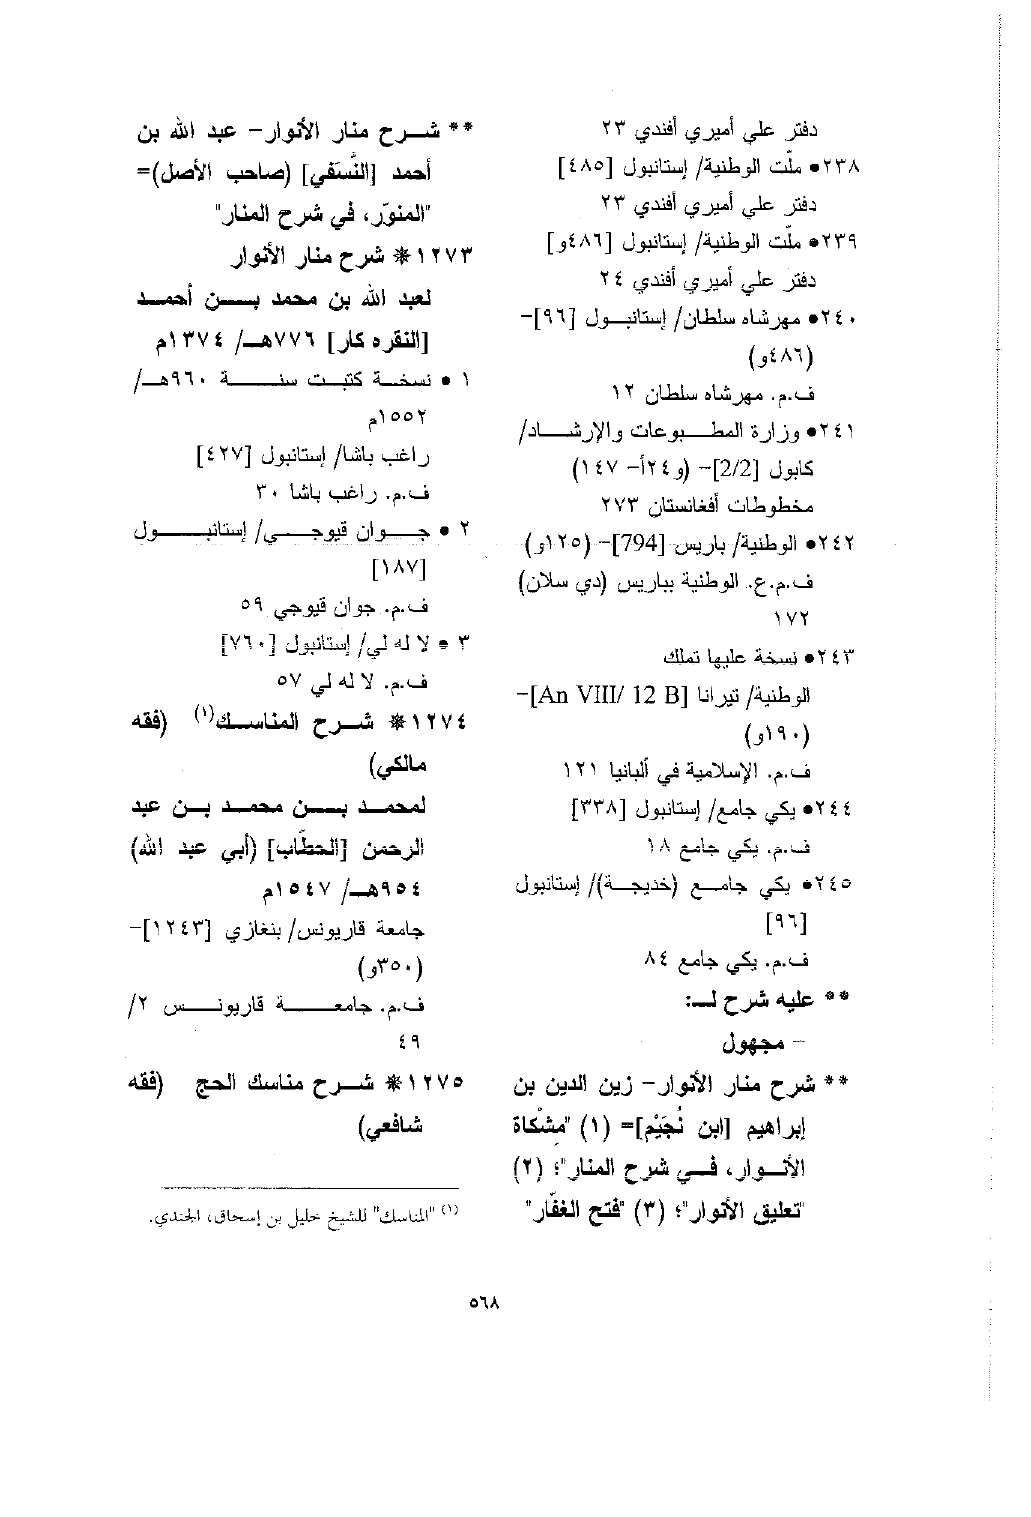 دفتر علي أميري أفندي ٢٣
٢٣٨• ملّت الوطنية/ إستانبول [٤٨٥]
دفتر علي أميري أفندي ٢٣
٢٣٩• ملّت الوطنية/ إستانبول [٤٨٦و]
دفتر علي أميري أفندي ٢٤
٢٤٠• مهرشاه سلطان/ إستانبول [٩٦]–
(٤٨٦و)
ف.م. مهرشاه سلطان ١٢
٢٤١• وزارة المطبوعات والإرشاد/
كابول [2/2]– (و٢٤أ– ١٤٧)
مخطوطات أفغانستان ٢٧٣
٢٤٢• الوطنية/ باريس [794]– (١٢٥و)
ف.م.ع. الوطنية بباريس (دي سلان)
١٧٢
٢٤٣• نسخة عليها تملك
الوطنية/ تيرانا [An VIII/ 12 B]–
(١٩٠و)
ف.م. الإسلامية في ألبانيا ١٢١
٢٤٤• يكي جامع/ إستانبول [٣٣٨]
ف.م. يكي جامع ١٨
٢٤٥• يكي جامع (خديجة)/ إستانبول
[٩٦]
ف.م. يكي جامع ٨٤
** عليه شرح لـ:
– مجهول
** شرح منار الأنوار– زين الدين بن
إبراهيم [ابن نُجَيْم]= (١) "مشْكاة
الأنوار، في شرح المنار"؛ (٢)
"تعليق الأنوار"؛ (٣) "فتح الغفّار"
** شرح منار الأنوار– عبد الله بن
أحمد [النَّسَفي] (صاحب الأصل)=
"المنوّر، في شرح المنار"
١٢٧٣* شرح منار الأنوار
لعبد الله بن محمد بن أحمد
[النقره كار] ٧٧٦هـ/ ١٣٧٤م
١ • نسخة كتبت سنة ٩٦٠هـ/
١٥٥٢م
راغب باشا/ إستانبول [٤٢٧]
ف.م. راغب باشا ٣٠
٢ • جوان قيوجي/ إستانبول
[١٨٧]
ف.م. جوان قيوجي ٥٩
٣ • لا له لي/ إستانبول [٧٦٠]
ف.م. لا له لي ٥٧
١٢٧٤* شرح المناسك(١) (فقه
مالكي)
لمحمد بن محمد بن عبد
الرحمن [الحطّاب] (أبي عبد الله)
٩٥٤هـ/ ١٥٤٧م
جامعة قاريونس/ بنغازي [١٢٤٣]–
(٣٥٠و)
ف.م. جامعة قاريونس ٢/
٤٩
١٢٧٥* شرح مناسك الحج (فقه
شافعي)
(١) "المناسك" للشيخ خليل بن إسحاق، الجندي.
٥٦٨